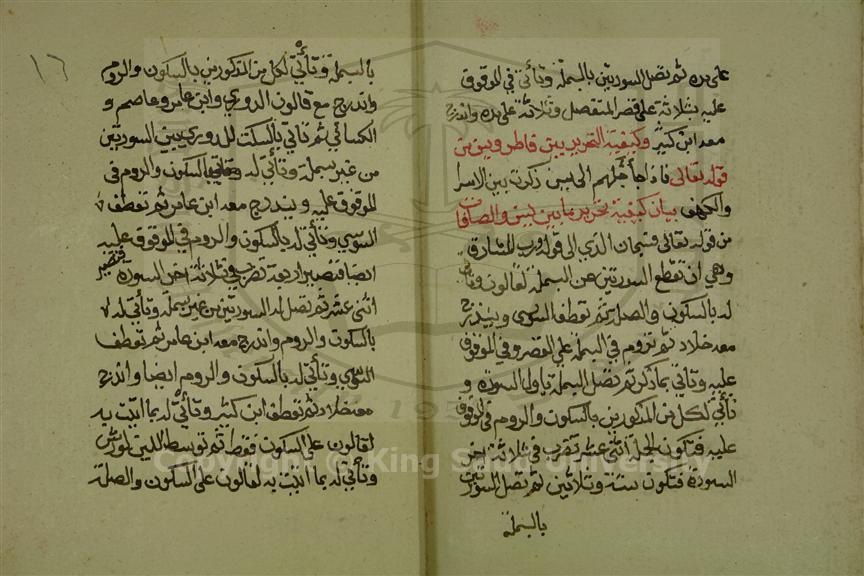 على مده ثم تصل السورتين بالبسملة وتأتي في الموقوف
عليه بثلاثة على قصر المنفصل وثلاثة على مده واندرج
معه ابن كثير وكيفية التحرير بين فاطر ويس من
قوله تعالى فاذا جا اجلهم الى يس ذكرت بين الاسرا
والكهف بيان كيفية تحرير ما بين يس والصافات
من قوله تعالى فسبحان الذي الى قوله ورب المشارق
وهي ان تقطع السورتين عن البسملة لقالون وتاتي
له بالسكون والصلة ثم تعطف السوسي ويندرج
معه خلاد ثم تروم في البسملة على القصر وفي الموقوف
عليه وتاتي بما ذكر ثم تصل البسملة باول السورة و
تأتي لكل من المذكورين بالسكون والروم في الموقوف
عليه فتكون الجملة اثنى عشر تضرب في ثلاثة اخر
السورة فتكون ستة وثلاثين ثم تصل السورتين
بالبسملة
١٦
بالبسملة وتأتي لكل من المذكورين بالسكون والروم
واندرج مع قالون الدوري وابن عامر وعاصم و
الكسائي ثم تأتي بالسكت للدوري بين السورتين
من غير بسملة وتأتي له بالسكون والروم في
الموقوف عليه ويندرج معه ابن عامر ثم تعطف
السوسي وتأتي له بالسكون والروم في الموقوف عليه
ايضا فتصير اربعة تضرب في ثلاثة اخر السورة فتصير
اثنى عشر ثم تصل له السورتين من غير بسملة وتأتي له
بالسكون والروم واندرج معه ابن عامر ثم تعطف
السوسي وتأتي له بالسكون والروم ايضا واندرج
معه خلاد ثم تعطف ابن كثير وتأتي له بما اتيت به
لقالون على السكون فقط ثم توسط اللين لورش
وتأتي له بما اتيت به لقالون على السكون والصلة
Copyright © King Saud University